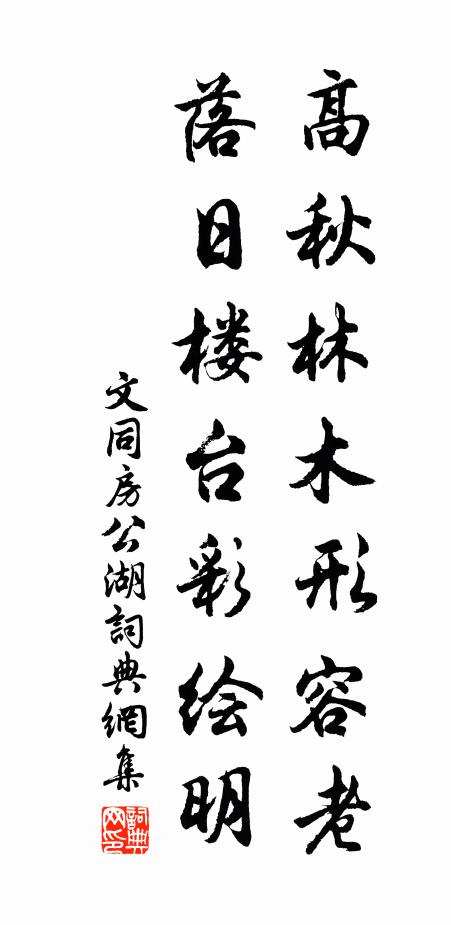 高秋林木形容老
落日楼台彩绘明
文同房公湖詞典網集
詞典网印